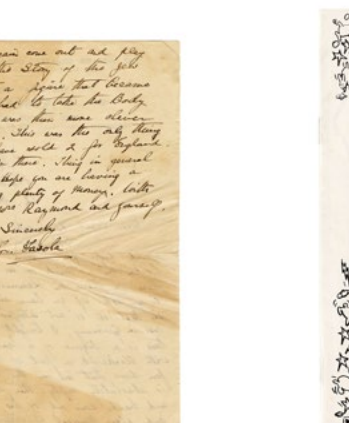 come out and play
the Story of the
a figure that became
had to take the Body
was then more clever
. This was the only thing
sold 2 for England.
there. Thing in general
hope you are having a
plenty of money. With
Raymond and
Sincerely